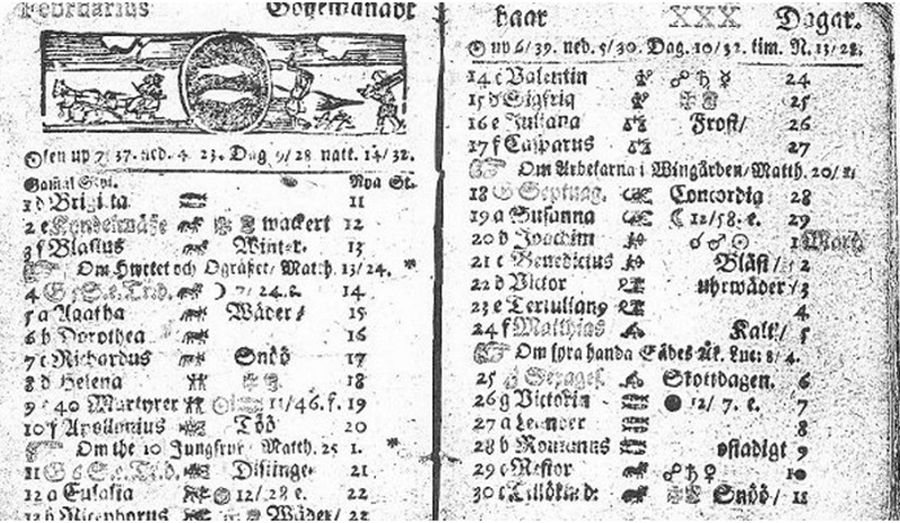 Februarius Göijemånadt
Solen up 7/37. ned. 4. 23. Dag 9/28 natt. 14/32.
Gamal Styl. Nya St.
1 d Brigitta 11
2 e wackert 12
3 f Blasius Winter. 13
Om Hwetet och Ogräset/ Matth. 13/24. *
4 G 5 S. e. Tr.d. ☽ 7/24. 14
5 a Agatha Wäder/ 15
6 b Dorothea 16
7 c Richardus Snöö 17
8 d Helena 18
9 e 40 Martyrer 11/46. f. 19
10 f Apollonius Töö 20
Om the 10 Jungfrur Matth. 25 1. *
11 G 6 S. e. Tr.d. Distinge 21
12 a Eulalia 12/28 e. 22
13 b Nicephorus Wäder/ 23
haar XXX Dagar.
up 6/39. ned. 5/30. Dag. 10/32. tim. N. 13/28.
14 c Valentin ☍ ♄ ☿ 24
15 d Sigfrid 25
16 e Juliana Frost/ 26
17 f Casparus 27
Om Arbetarna i Wingården/ Matth. 20/1.
18 G Septuag. Concordia 28
19 a Susanna ☾ 12/58. e. 29
20 b Joachim ☌ ♂ ☉ 1 Mars
21 c Benedictus Blåst/ 2
22 d Victor uhrwäder/ 3
23 e Tertulian9 4
24 f Matthias Kalt/ 5
Om fyra handa Sädes Åk. Luc: 8/4.
25 G Sexages. Skottdagen. 6
26 g Victorin ● 12/7. e. 7
27 a Leander 8
28 b Romanus ostadigt 9
29 c Nestor ☍ ♄ ♀ 10
30 c Snöö/ 11